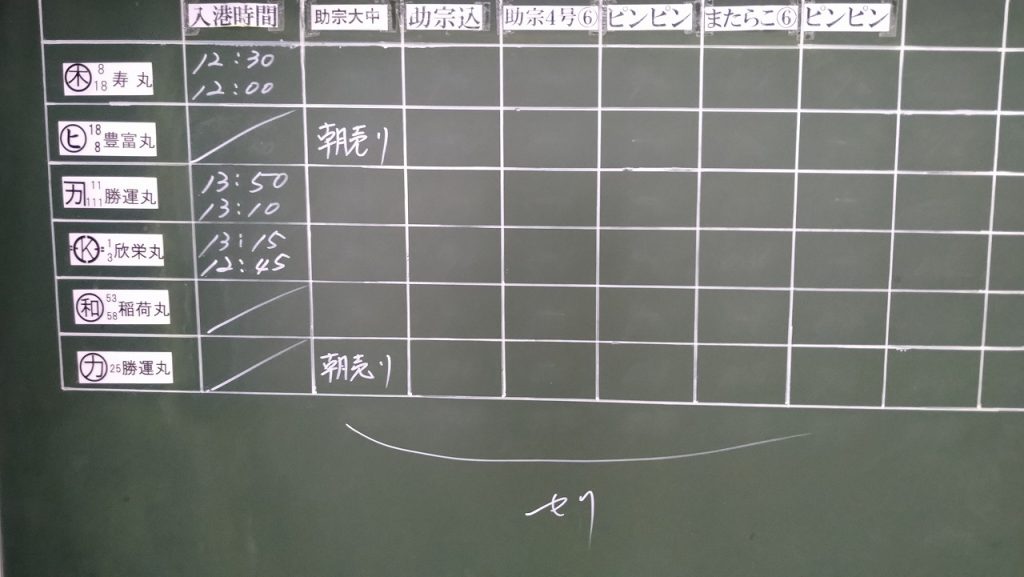 入港時間 助宗大中 助宗込 助宗4号⑥ ピンピン またらこ⑥ ピンピン
木 8 18 寿丸 12:30 12:00
ヒ 18 8 豊富丸 朝売り
カ 11 111 勝運丸 13:50 13:10
K 1 3 欣栄丸 13:15 12:45
和 53 58 稲荷丸
カ 25 勝運丸 朝売り
セリ